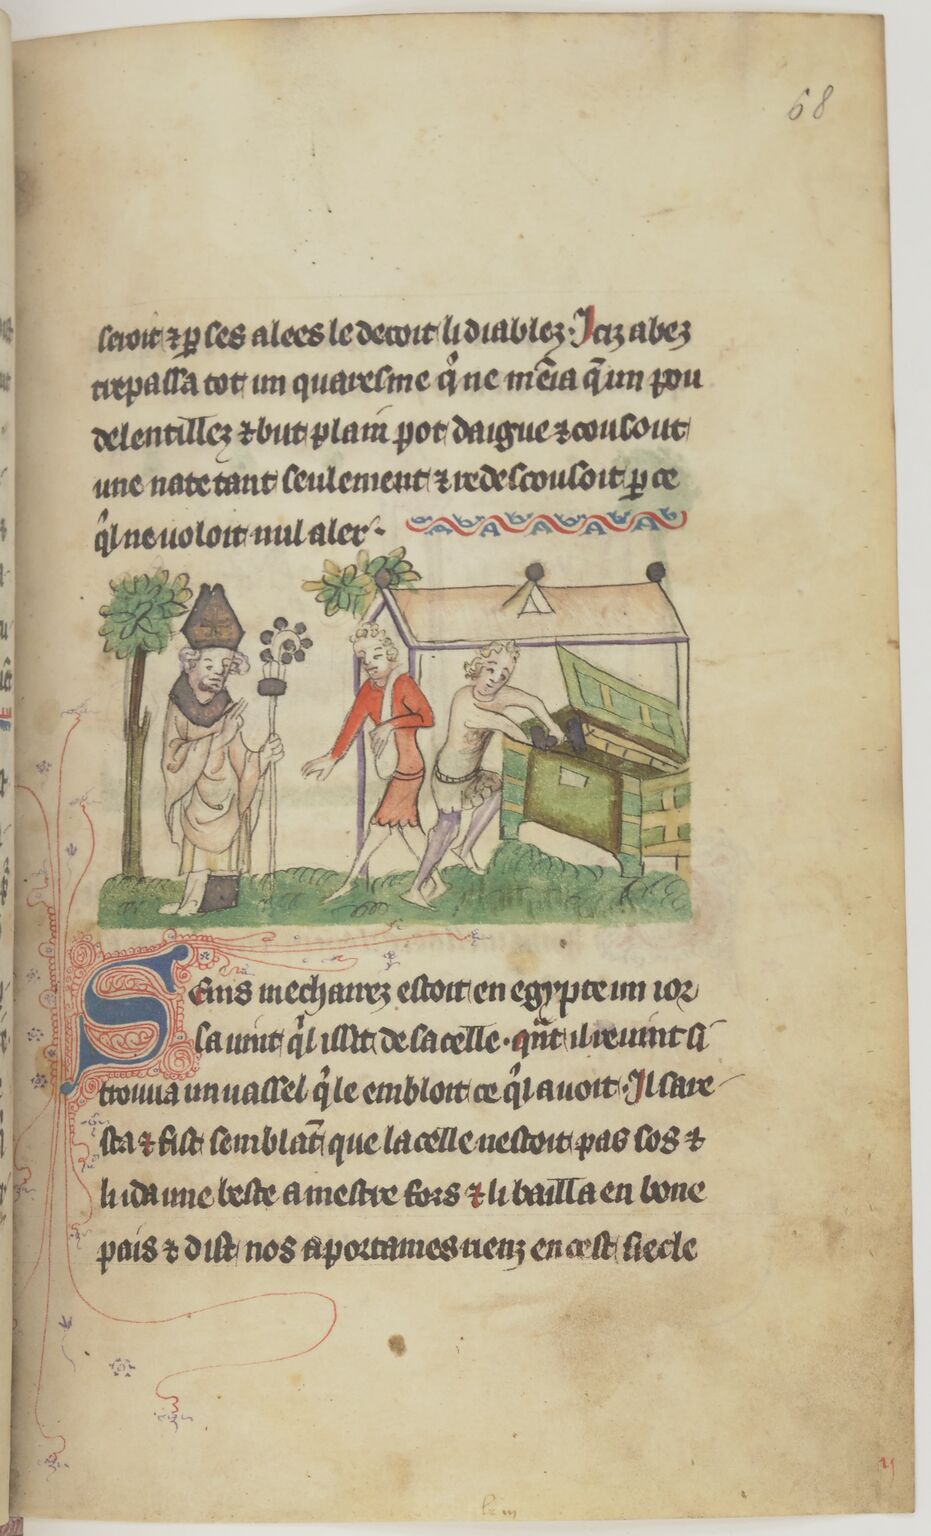 68
seroit ⁊ ꝑ ses alees le decoit li diablez · Iciz abez
trespassa tot un quaresme q̉ ne mēia q̄ un pou
de lentillez ⁊ but plain pot daigue ⁊ cousout
une nate tant seulement ⁊ redescousoit ꝑ ce
q̉l ne uoloit nul aler ·
Seins mecharrez estoit en egypte un ior
la uint q̉l issit de sa celle · qn̄t il reuint si
trouua un uassel q̉ le embloit ce q̉l auoit · Il sare
sta ⁊ fist semblāt que la celle nestoit pas sos ⁊
li ida une beste a mestre fors ⁊ li bailla en bone
pais ⁊ dist nos aportames rienz en cest siecle